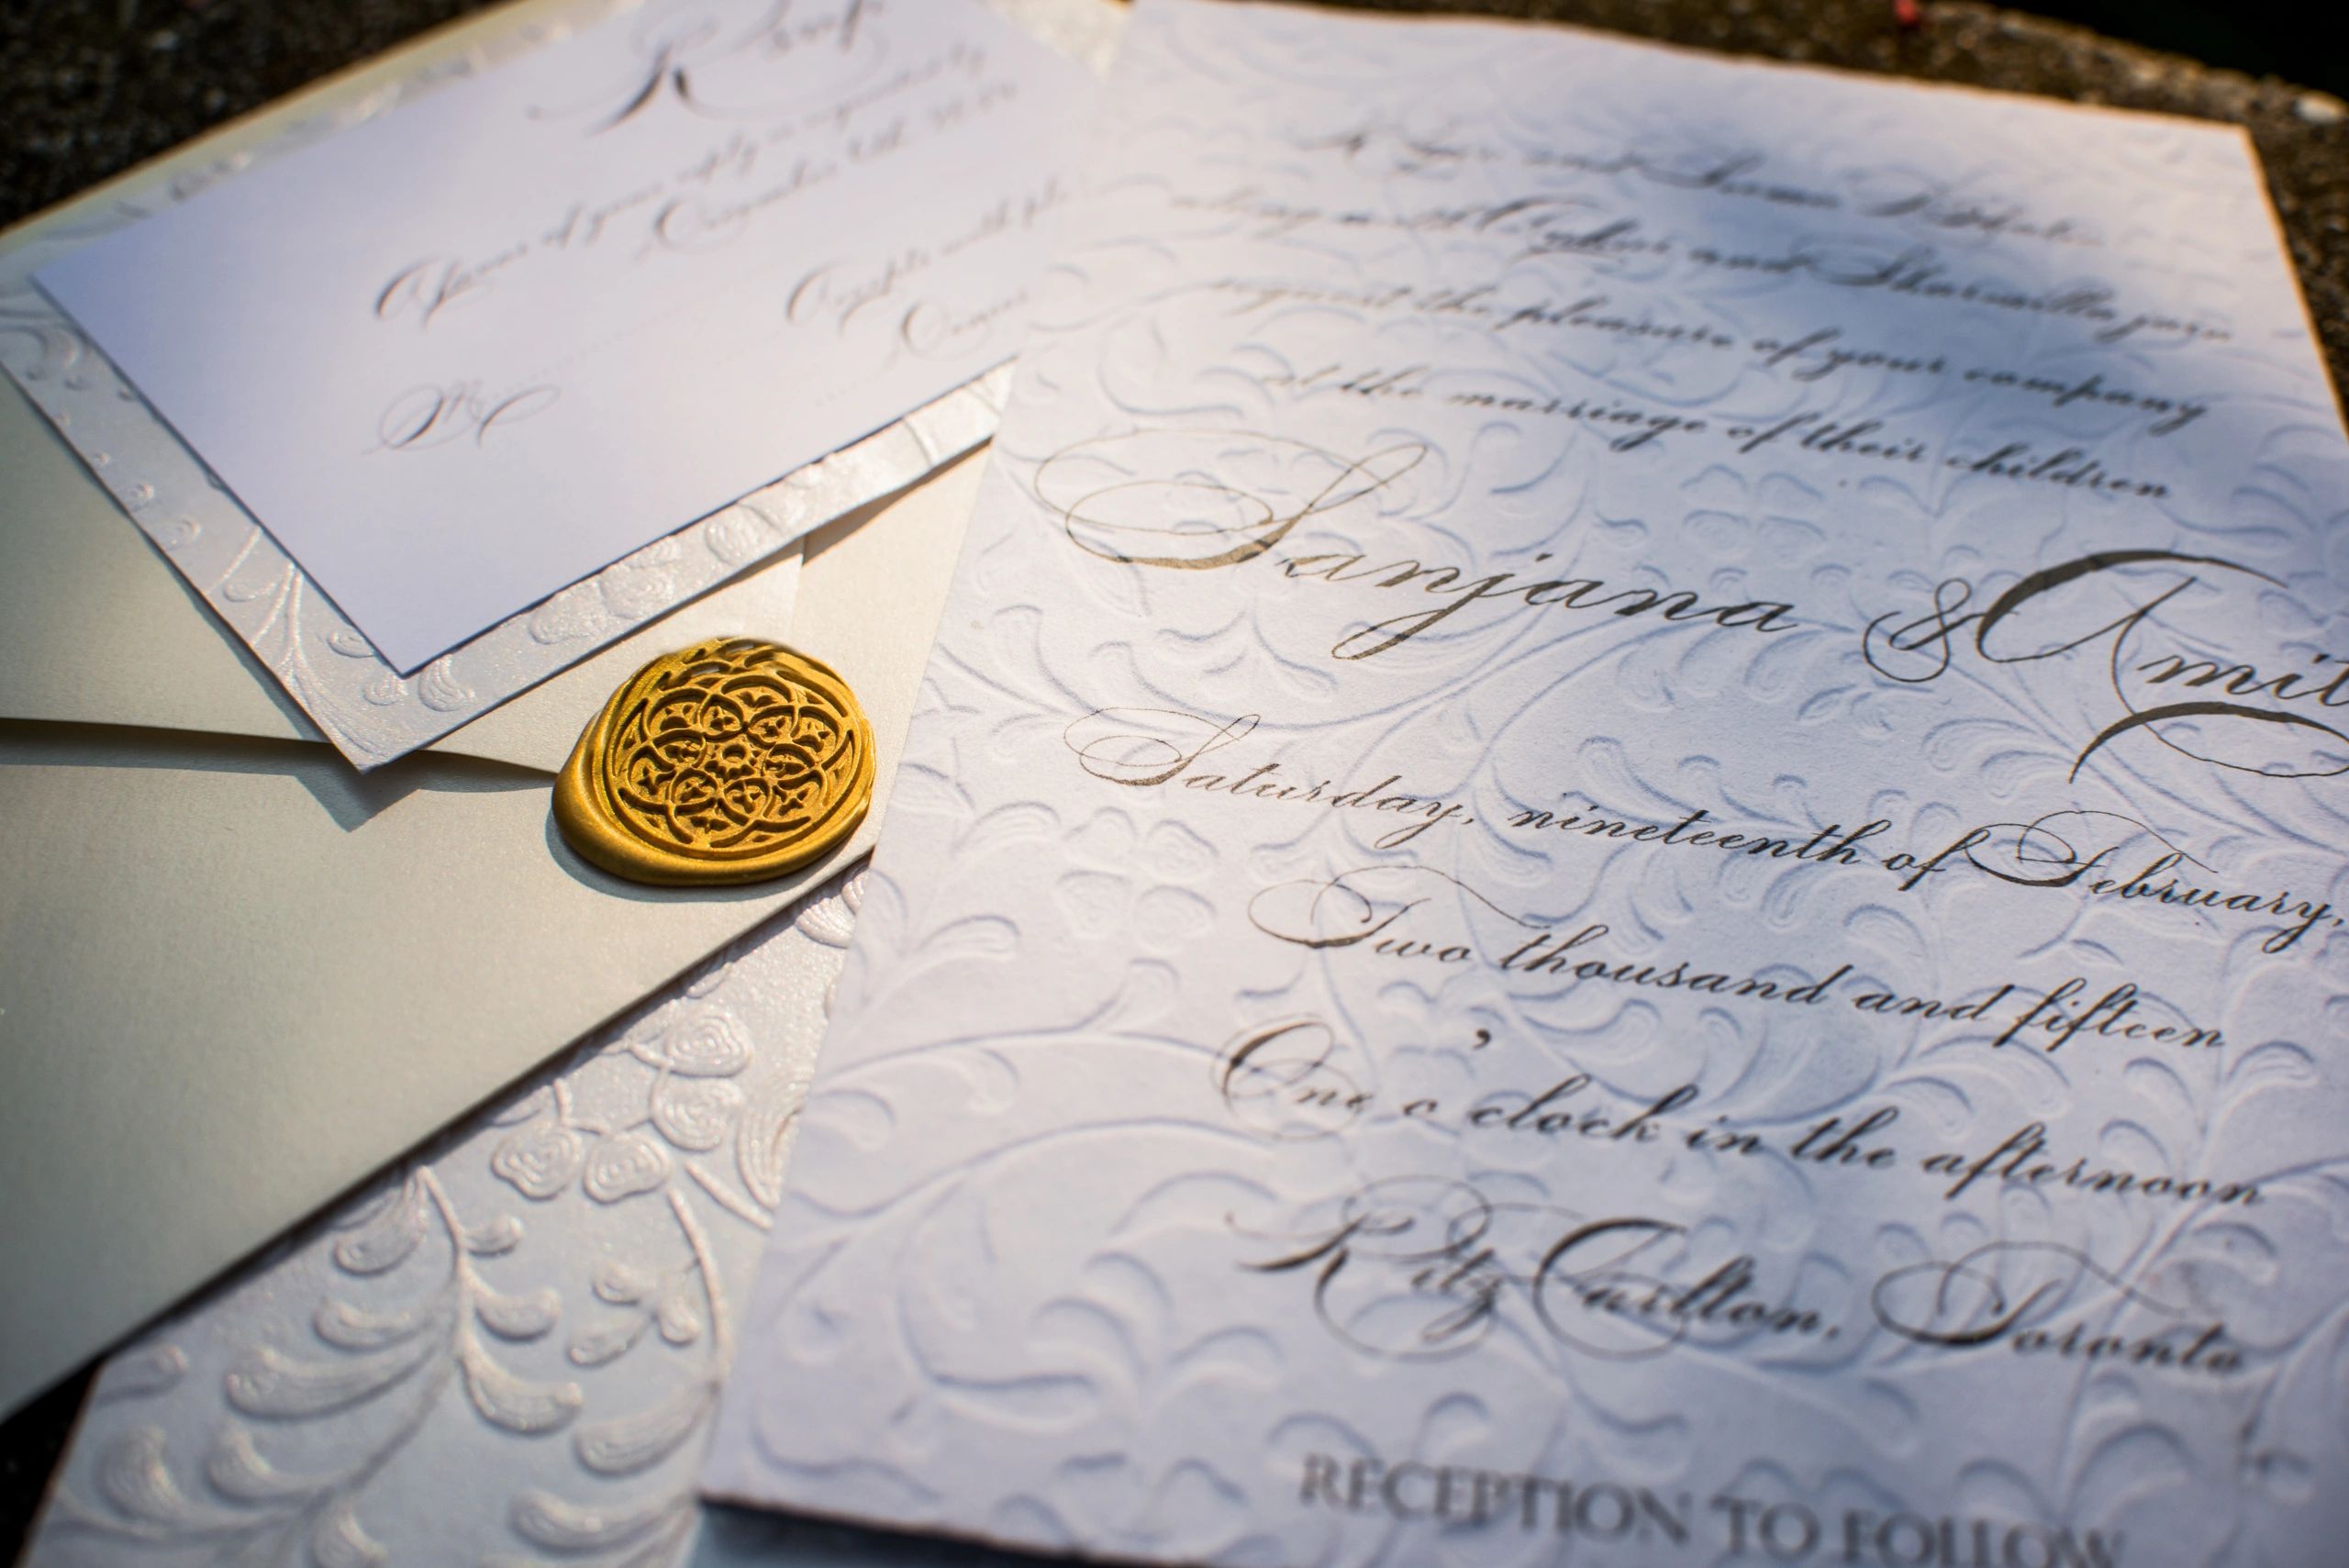 Rsvp
A favour of your reply is requested by
Accepts with
M
along with
and
request the pleasure of your company
at the marriage of their children
Sanjana & Amit
Saturday, nineteenth of February,
Two thousand and fifteen
One o'clock in the afternoon
Ritz Carlton, Toronto
RECEPTION TO FOLLOW